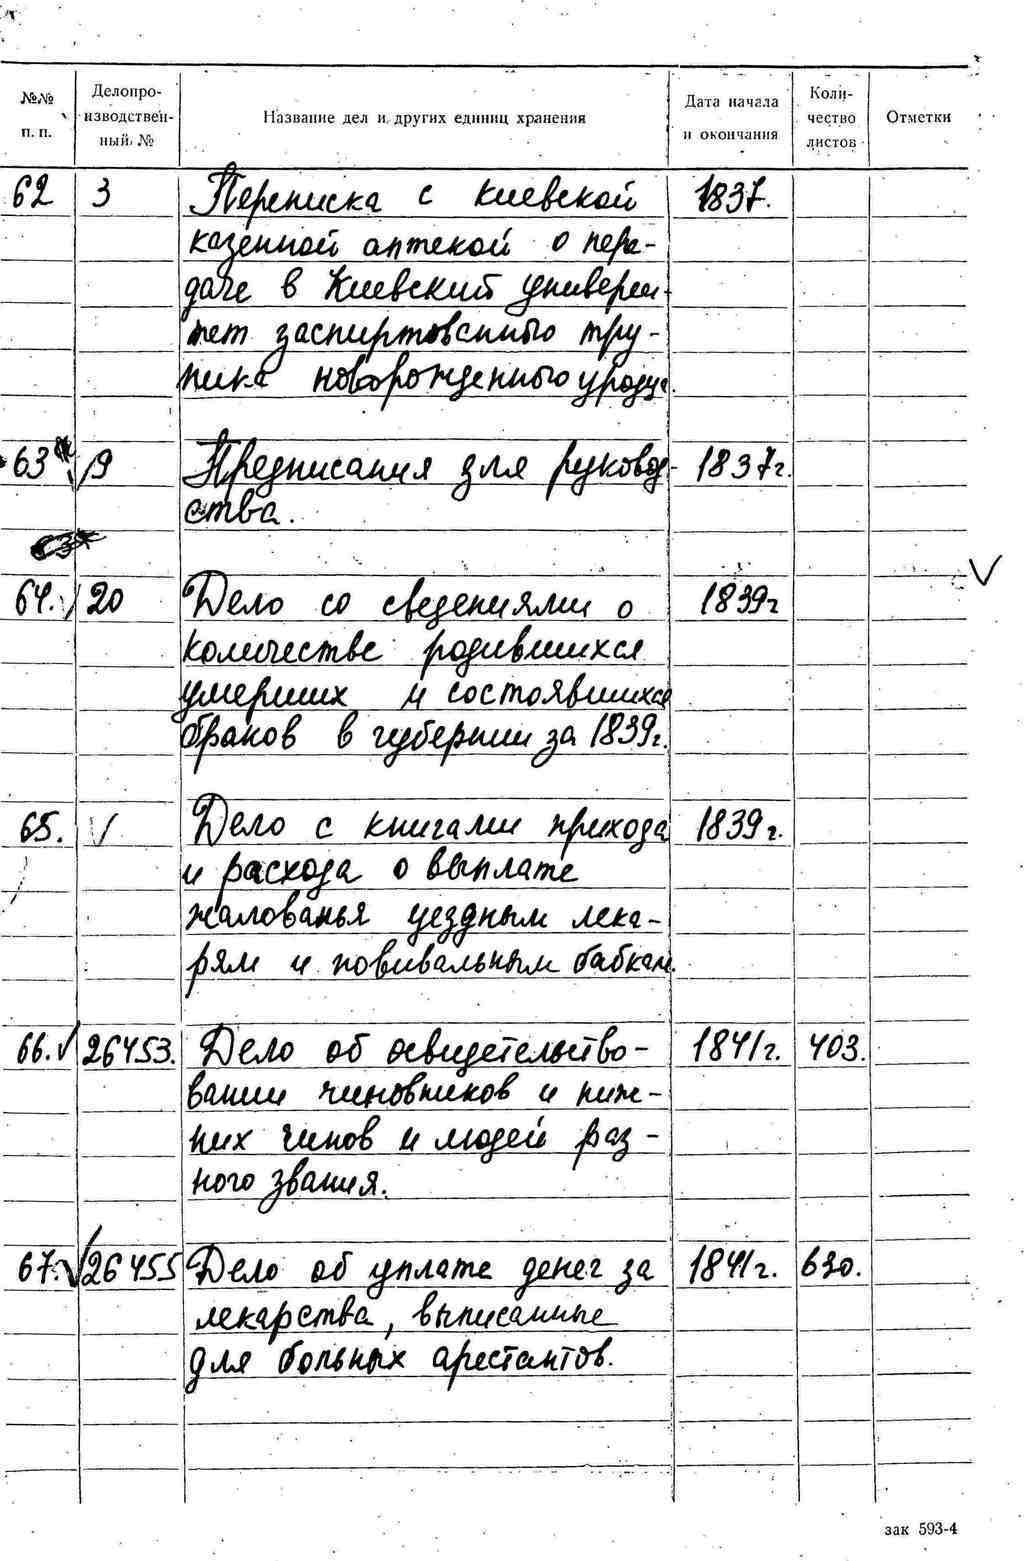 №№ п. п. Делопроизводственный № Название дел и других единиц хранения Дата начала и окончания Количество листов Отметки
62 3 Переписка с Киевской 1837.
казенной аптекой о пере-
даче в Киевский универси-
тет заспиртованного тру-
пика новорожденного уродца.
63 19 Предписания для руковод- 1837г.
ства.
64. 20 Дело со сведениями о 1839г
количестве родившихся
умерших и состоявшихся
браков в губернии за 1839г.
65. Дело с книгами прихода 1839г.
и расхода о выплате
жалованья уездным лека-
рям и повивальным бабкам.
66. 26453. Дело об освидетельство- 1841г. 403.
вании чиновников и ниж-
них чинов и людей раз-
ного звания.
67. 26455 Дело об уплате денег за 1841г. 630.
лекарства, выписанные
для больных арестантов.
зак 593-4